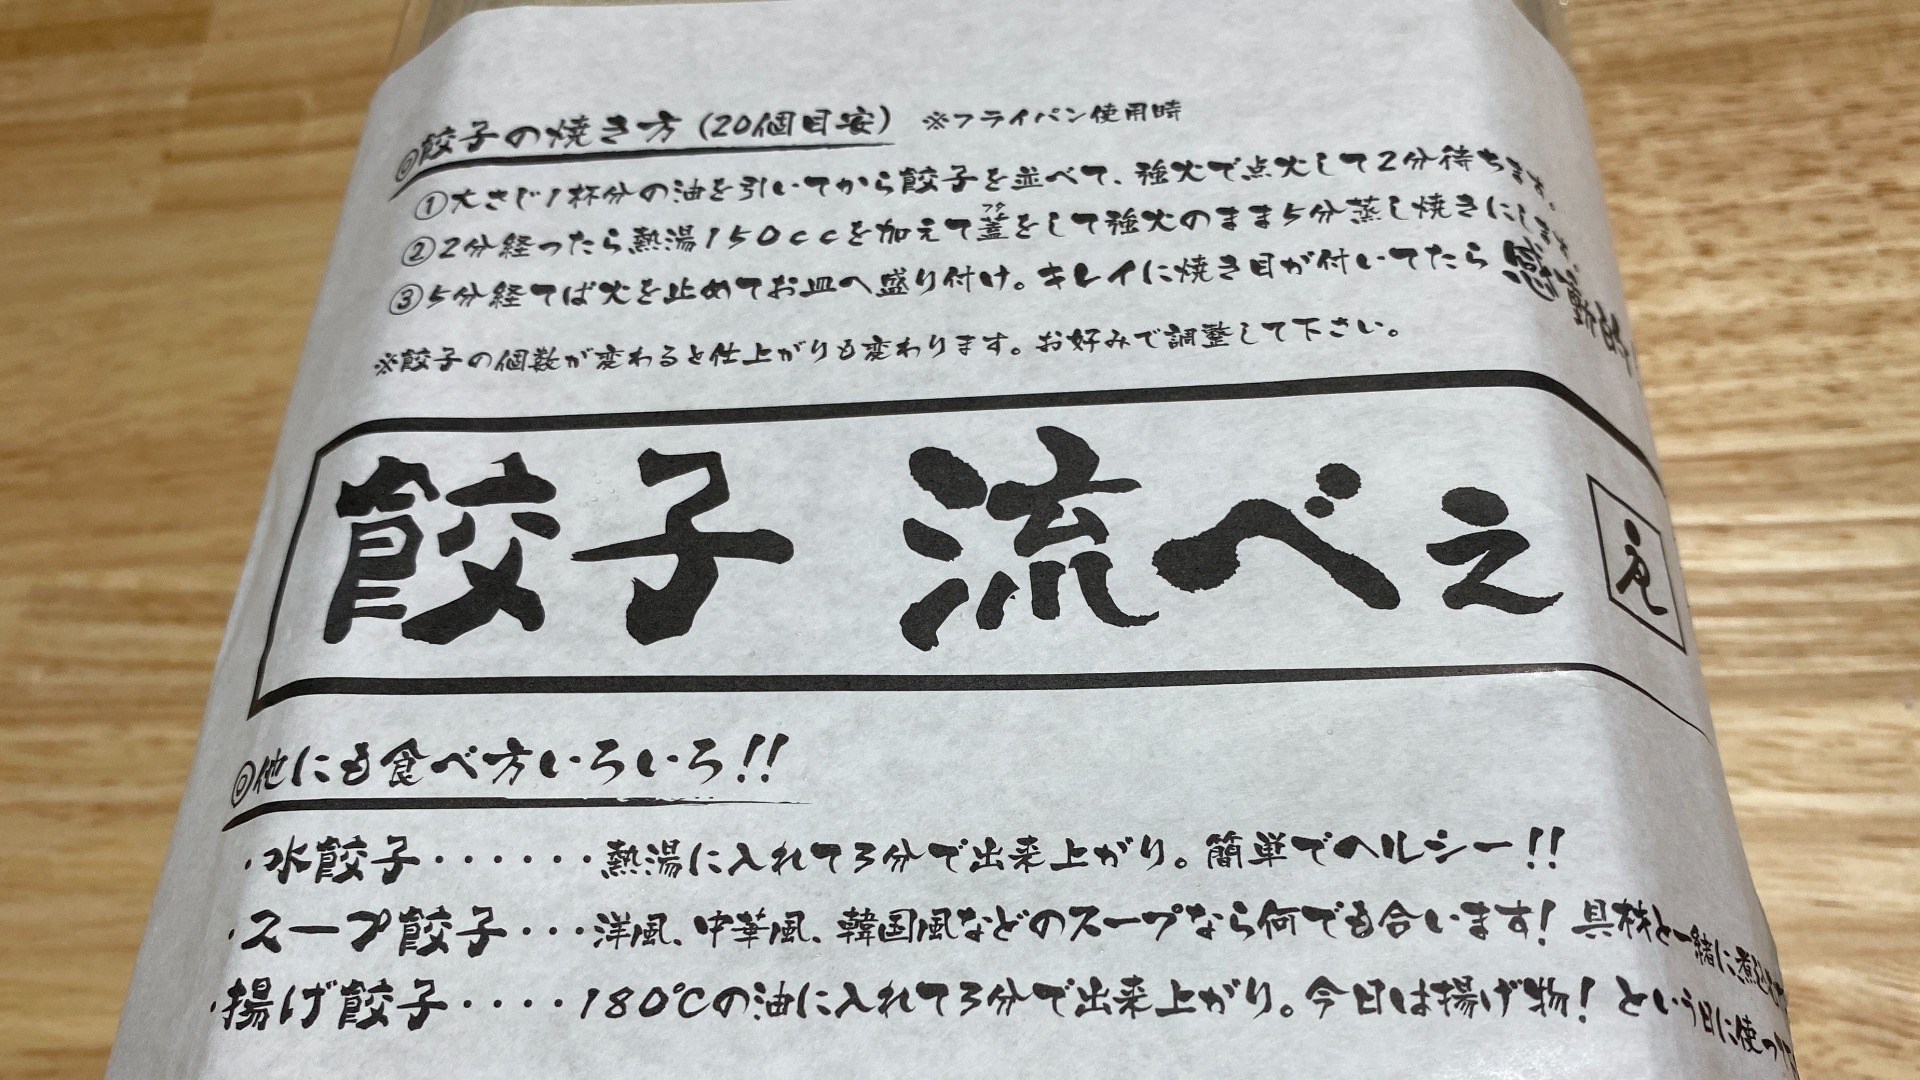 ◎餃子の焼き方(20個目安) ※フライパン使用時
①大さじ1杯分の油を引いてから餃子を並べて、強火で点火して2分待ちます。
②2分経ったら熱湯150ccを加えて蓋をして強火のまま5分蒸し焼きにします。
フタ
③5分経てば火を止めてお皿へ盛り付け。キレイに焼き目が付いてたら
※餃子の個数が変わると仕上がりも変わります。お好みで調整して下さい。
餃子 流べえ
◎他にも食べ方いろいろ!!
・水餃子・・・・・・熱湯に入れて3分で出来上がり。簡単でヘルシー!!
・スープ餃子・・・洋風、中華風、韓国風などのスープなら何でも合います! 具材と一緒に煮込
・揚げ餃子・・・・180℃の油に入れて3分で出来上がり。今日は揚げ物! という日に使っ